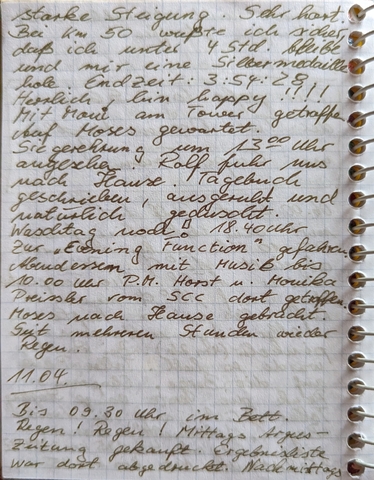 starke Steigung. Sehr hart.
Bei Km 50 wußte ich sicher,
daß ich unter 4 Std. bleibe
und mir eine Silbermedaille
hole. Endzeit: 3:54:28
Herrlich, bin happy !!!!
Mit Moni am Tower getroffen
auf Moses gewartet.
Siegerehrung um 13.00 Uhr
angesehen. Rolf fuhr uns
nach Hause. Tagebuch
geschrieben, ausgeruht und
natürlich geduscht.
Waschtag noch 18.40 Uhr
Zur „Evening Function" gefahren.
Abendessen mit Musik bis
10.00 Uhr P.M. Horst u. Monika
Preissler vom SCC dort getroffen.
Moses nach Hause gebracht.
Seit mehreren Stunden wieder
Regen.
11.04.
Bis 09.30 Uhr im Bett.
Regen! Regen! Mittags Argus-
Zeitung gekauft. Ergebnisliste
war dort abgedruckt. Nachmittags